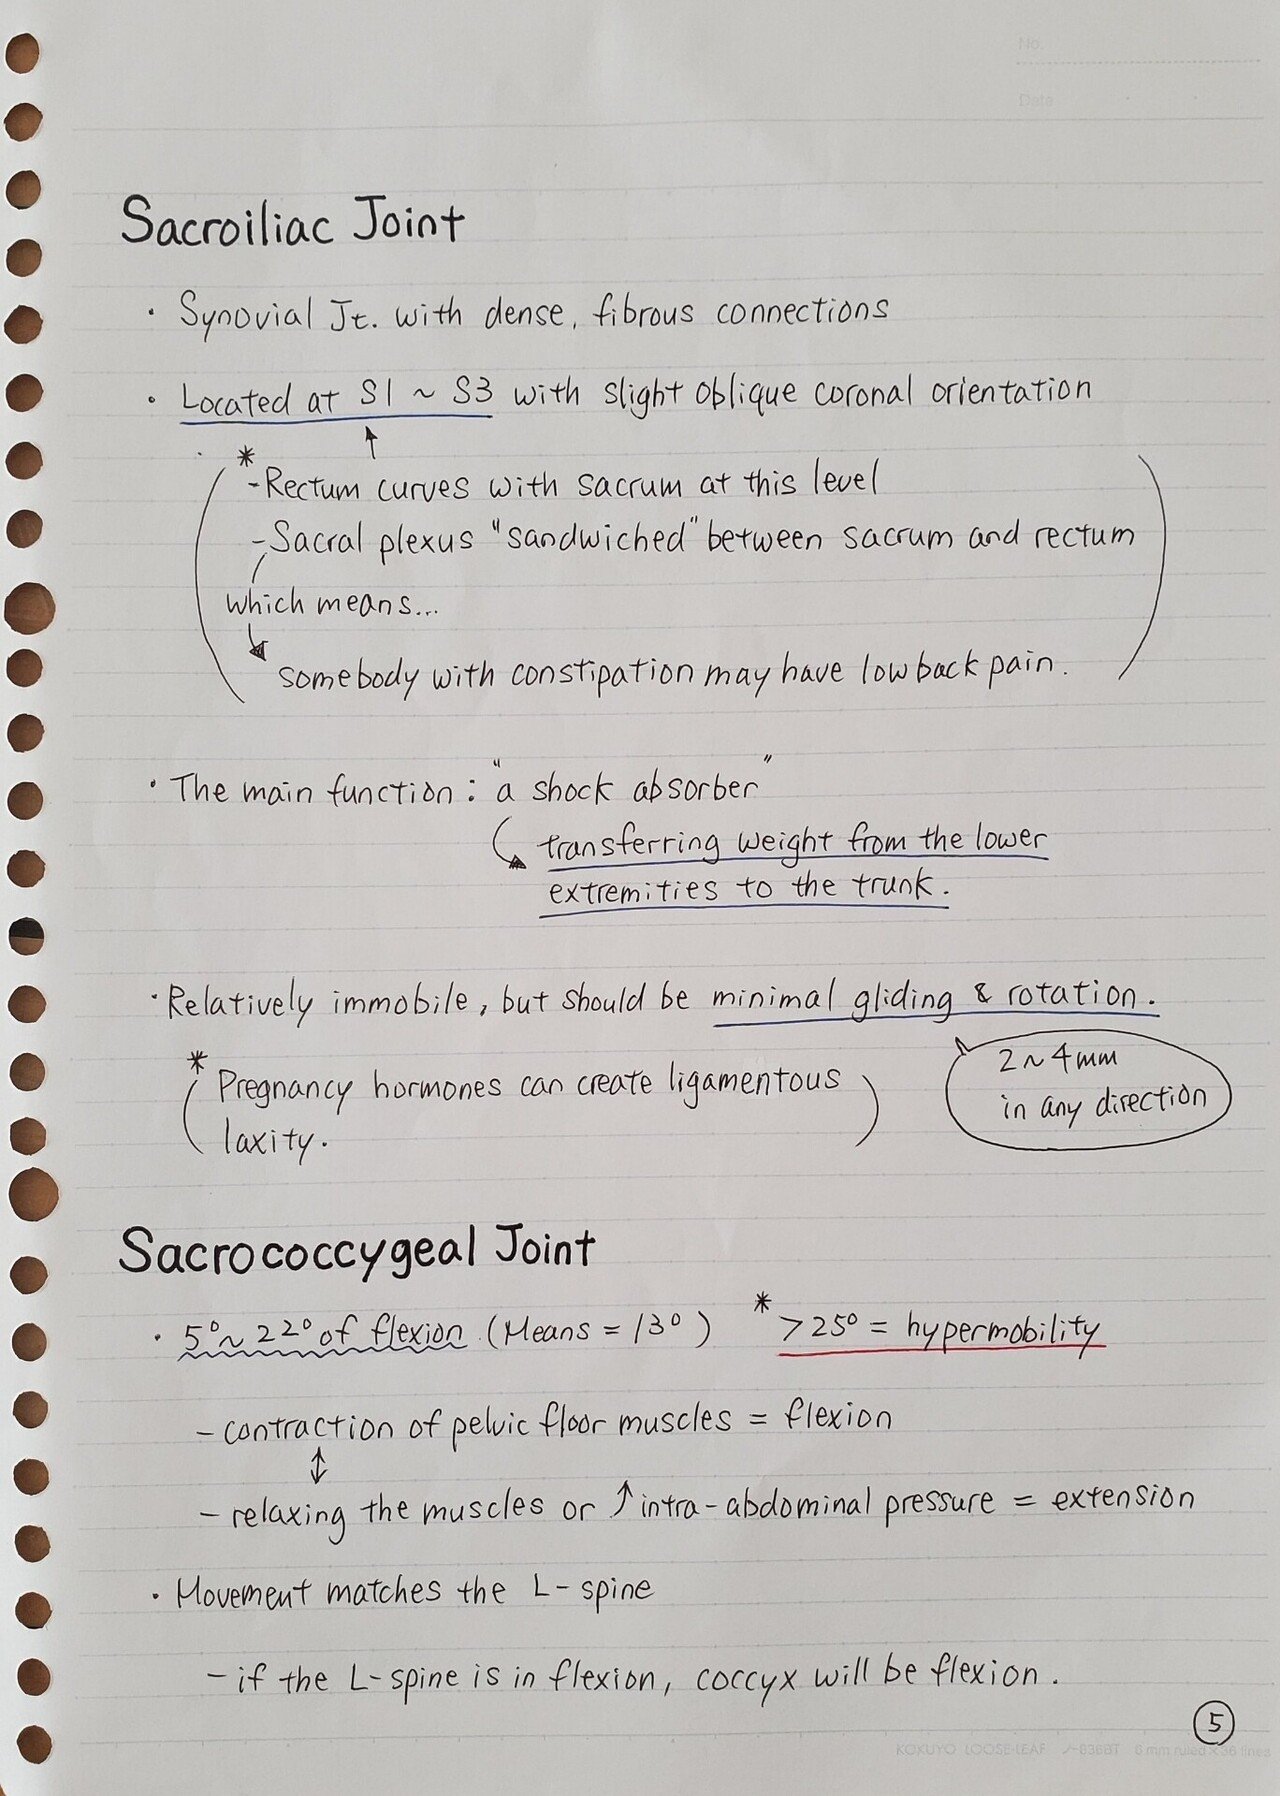 No.
Date
Sacroiliac Joint
· Synovial Jt. with dense, fibrous connections
· Located at S1 ~ S3 with slight oblique coronal orientation
* -Rectum curves with sacrum at this level
-Sacral plexus "sandwiched" between sacrum and rectum
which means...
somebody with constipation may have low back pain.
· The main function : "a shock absorber"
transferring weight from the lower
extremities to the trunk.
· Relatively immobile, but should be minimal gliding & rotation.
2~4mm
in any direction
* (Pregnancy hormones can create ligamentous
laxity.)
Sacrococcygeal Joint
· 5°~22° of flexion (Means = 13°) * >25° = hypermobility
- contraction of pelvic floor muscles = flexion
↕
- relaxing the muscles or ↑ intra-abdominal pressure = extension
· Movement matches the L-spine
- if the L-spine is in flexion, coccyx will be flexion.
5
KOKUYO LOOSE-LEAF ノ-836BT 6 mm ruled × 36 lines